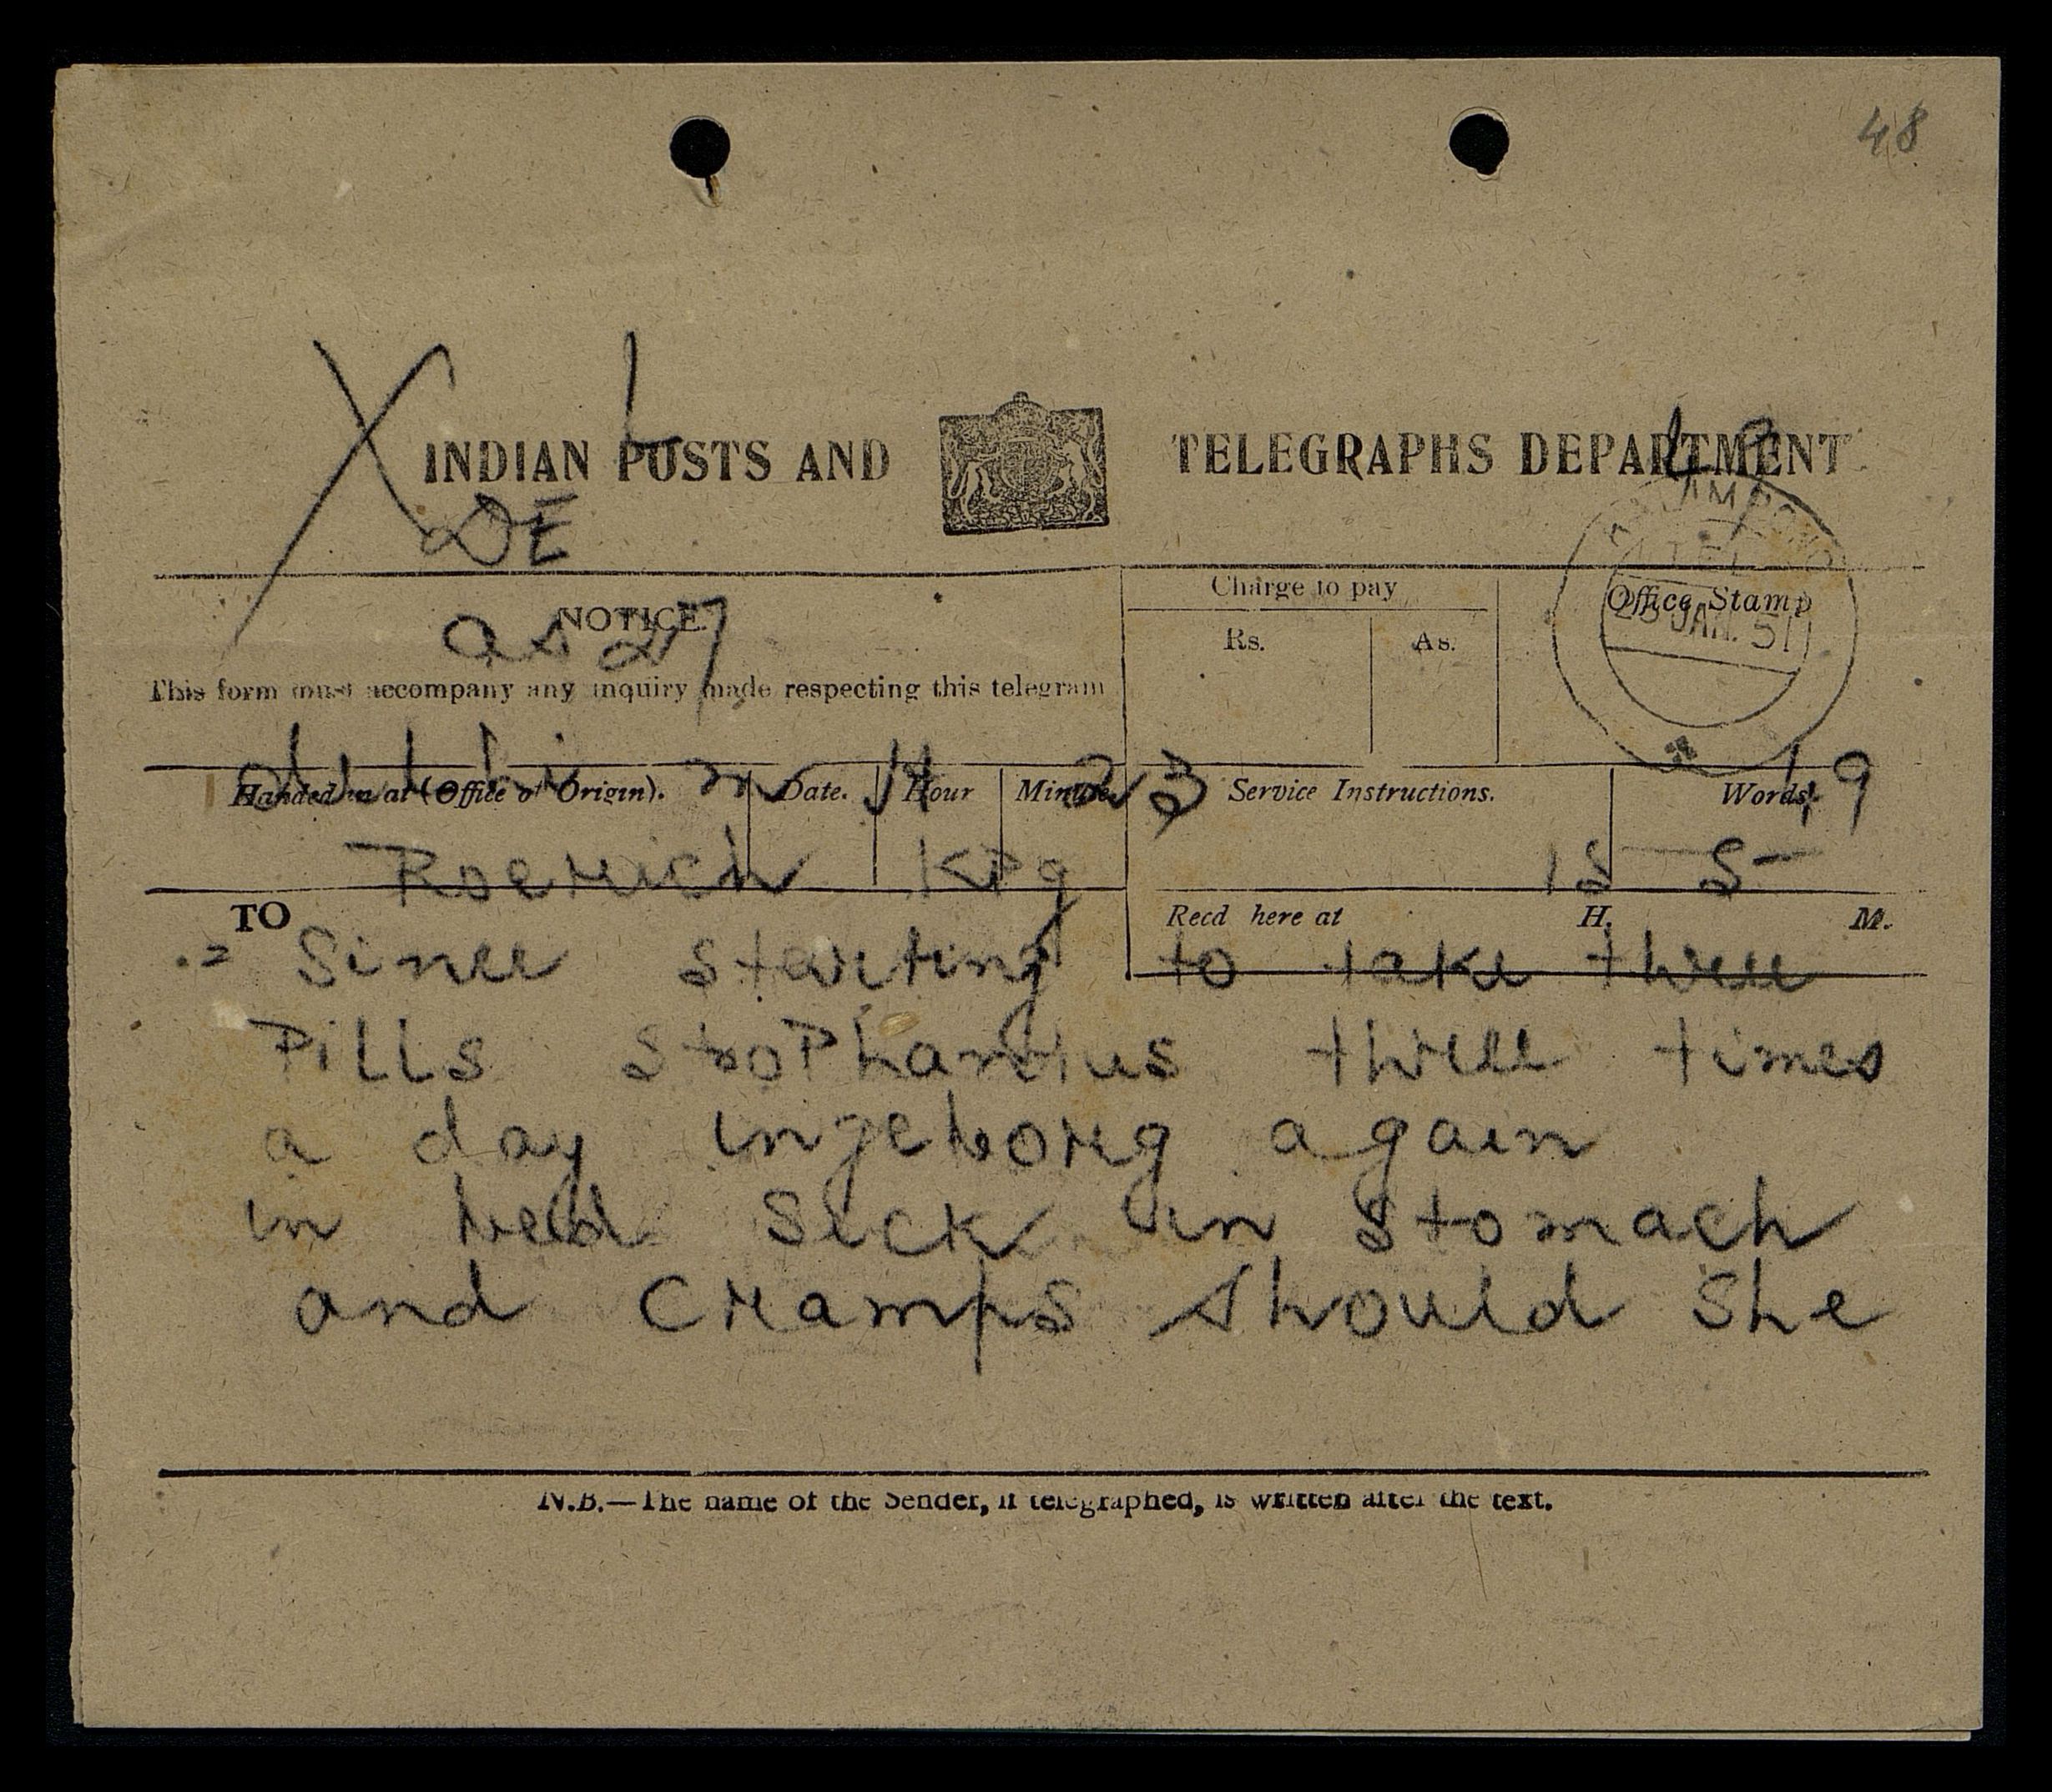 48
X L
INDIAN POSTS AND TELEGRAPHS DEPARTMENT
DE
NOTICE
This form must accompany any inquiry made respecting this telegram
Charge to pay
Rs. As.
Office Stamp
JAN. 51
Handed in at (Office of Origin). Date. Hour Minute. Service Instructions. Words.
23 19
Roerich Kpg 15 5-
TO Recd here at H. M.
= Since starting to take three
Pills StroPhantus three times
a day ingeborg again
in bed Sick in Stomach
and Cramps Should She
N.B.—The name of the Sender, if telegraphed, is written after the text.